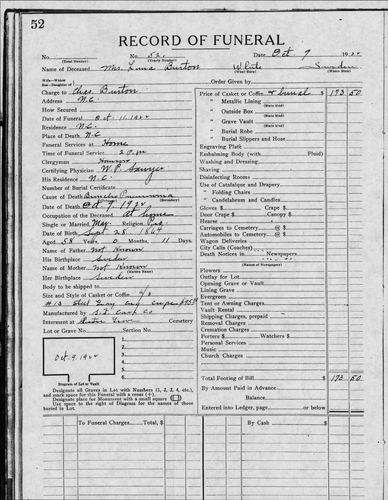 52
RECORD OF FUNERAL
No. No. Date Oct 9 19
(Total Number) (Yearly Number)
Name of Deceased Mrs. Burton White Sweden
(What Race) (Where Born)
Charge to Chas. Burton
Address N.C.
How Secured
Date of Funeral Oct. 11, 1922
Residence N.C.
Place of Death N.C
Funeral Services at Home
Time of Funeral Service 2 P.M.
Clergyman
Certifying Physician W.P. Sawyer
His Residence N.C.
Number of Burial Certificate
Cause of Death Pneumonia
Date of Death Oct 9, 1922
Occupation of the Deceased at home
Single or Married Mar. Religion
Date of Birth Sept 28, 1864
Aged 58 Years 0 Months 11 Days
Name of Father Not Known
His Birthplace Sweden
Name of Mother Not Known
(Maiden Name)
Her Birthplace Sweden
Body to be shipped to
Size and Style of Casket or Coffin
Manufactured by
Interment at Cemetery
Lot or Grave No. Section No.
1.
2.
3.
4.
5.
6.
Oct. 9. 1922
Diagram of Lot or Vault
Designate all Graves in Lot with Numbers (1, 2, 3, 4, etc.),
and that for this Funeral with a cross (+).
Designate place for Monument with a small square
Use space to the right of Diagram for the names of those
buried in Lot.
Order Given by
Price of Casket or Coffin & burial $ 193 50
" Metallic Lining
(State Kind)
" Outside Box
(State Kind)
" Grave Vault
(State Kind)
" Burial Robe
(State Kind)
" Burial Slippers and Hose
Engraving Plate
Embalming Body (with Fluid)
Washing and Dressing
Shaving
Disinfecting Rooms
Use of Catafalque and Drapery
" Folding Chairs
" Candelabrum and Candles
Gloves $ Crape $
Door Crape $ Canopy $
Hearse
Carriages to Cemetery @ $
Automobiles to Cemetery @ $
Wagon Deliveries
City Calls (Coaches)
Death Notices in Newspapers
(Names of Newspapers)
Flowers
Outlay for Lot
Opening Grave or Vault
Lining Grave
Evergreen
Tent or Awning Charges
Vault Rental
Shipping Charges, prepaid
Removal Charges
Cremation Charges
Porters $ Watchers $
Personal Services
Music
Church Charges
Total Footing of Bill $ 193 50
By Amount Paid in Advance
Balance
Entered into Ledger, page or below
To Funeral Charges Total $
By Cash $